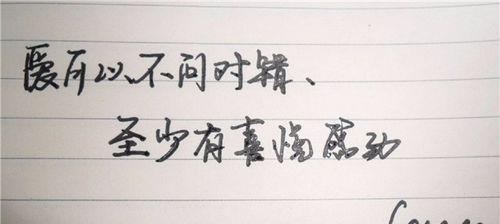 爱可以不问对错、
至少有喜悦感动